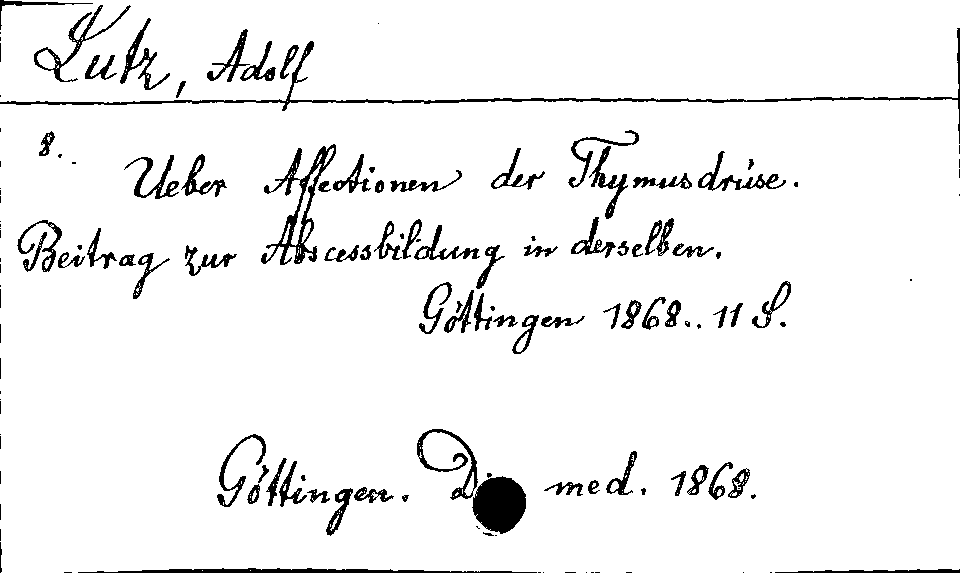 Lutz, Adolf
8.
Ueber Affectionen der Thymusdrüse.
Beitrag zur Abscessbildung in derselben.
Göttingen 1868. 11 S.
Göttingen. med. 1868.